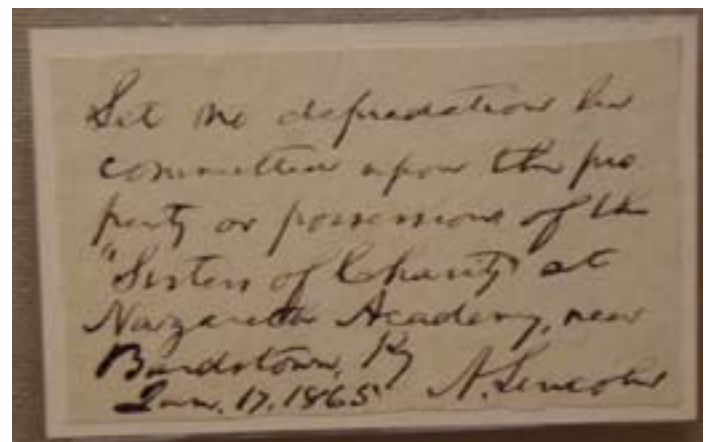 Let no depredation be
committed upon the pro
perty or possessions of the
"Sisters of Charity" at
Nazareth Academy, near
Bardstown, Ky
Jan. 17, 1865 A. Lincoln